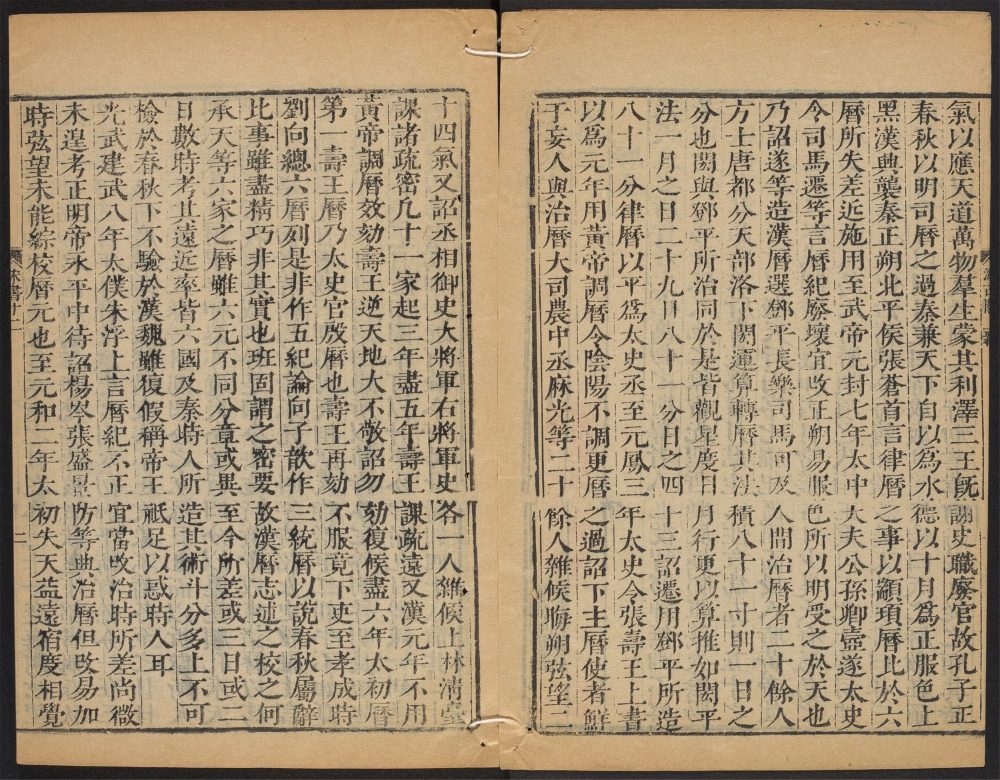 氣以應天道萬物羣生蒙其利澤三王既謝史職廢官故孔子正
春秋以明司曆之過秦兼天下自以為水德以十月為正服色上
黑漢興襲秦正朔北平侯張蒼首言律曆之事以顓頊曆比於六
曆所失差近施用至武帝元封七年太中大夫公孫卿壺遂太史
令司馬遷等言曆紀廢壞宜改正朔易服色所以明受之於天也
乃詔遂等造漢曆選鄧平長樂司馬可及人間治曆者二十餘人
方士唐都分天部落下閎運算轉曆其法積八十一寸則一日之
分也閎與鄧平所治同於是皆觀星度日月行更以算推如閎平
法一月之日二十九日八十一分日之四十三詔遷用鄧平所造
八十一分律曆以平爲太史丞至元鳳三年太史令張壽王上書
以爲元年用黃帝調曆令陰陽不調更曆之過詔下主曆使者鮮
于妄人與治曆大司農中丞麻光等二十餘人雜候晦朔弦望二
十四氣又詔丞相御史大將軍右將軍史各一人雜候上林清臺
課諸疏密凡十一家起三年盡五年壽王課疏遠又漢元年不用
黃帝調曆效劾壽王逆天地大不敬詔勿劾復候盡六年太初曆
第一壽王曆乃太史官殷曆也壽王再劾不服竟下吏至孝成時
劉向總六曆列是非作五紀論向子歆作三統曆以說春秋屬辭
比事雖盡精巧非其實也班固謂之密要故漢曆志述之校之何
承天等六家之曆雖六元不同分章或異至今所差或三日或二
日數時考其遠近率皆六國及秦時人所造其術斗分多上不可
檢於春秋下不驗於漢魏雖復假稱帝王祇足以惑時人耳
光武建武八年太僕朱浮上言曆紀不正宜當改治時所差尚微
未遑考正明帝永平中待詔楊岑張盛景防等典治曆但改易加
時弦望未能綜校曆元也至元和二年太初失天益遠宿度相覺
二